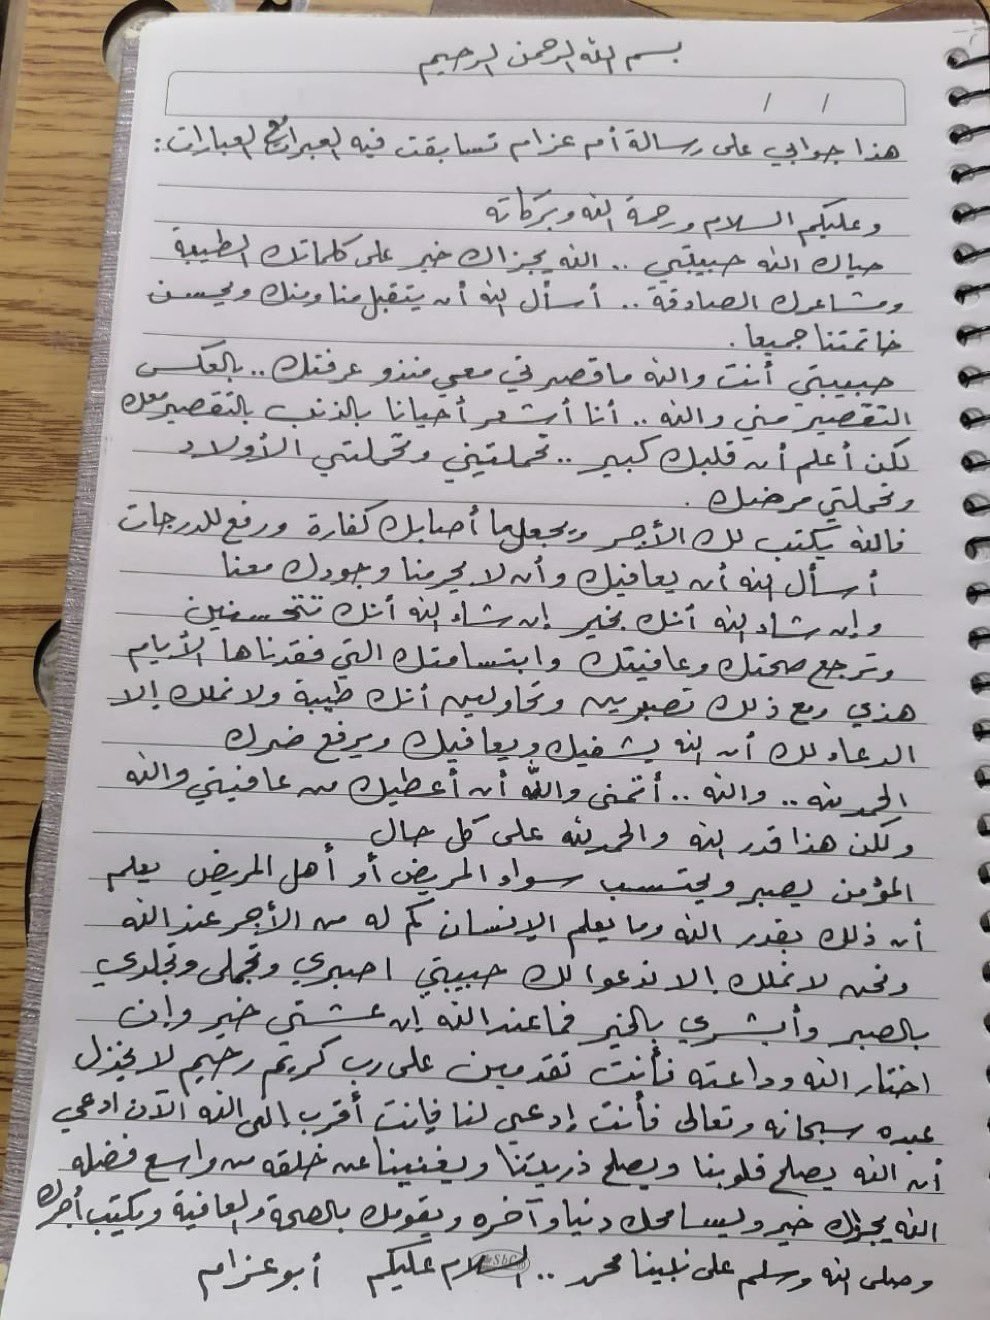 بسم الله الرحمن الرحيم
/ /
هذا جوابي على رسالة أم عزام تسابقت فيه العبرات مع العبارات:
وعليكم السلام ورحمة الله وبركاته
حياك الله حبيبتي .. الله يجزاك خير على كلماتك الطيبة
ومشاعرك الصادقة .. أسأل الله أن يتقبل منا ومنك ويحسن
خاتمتنا جميعا .
حبيبتي أنت والله ما قصرتي معي منذو عرفتك .. بالعكس
التقصير مني والله .. أنا أشعر أحيانا بالذنب بالتقصير معك
لكن أعلم أن قلبك كبير .. تحملتيني وتحملتي الأولاد
وتحملتي مرضك .
فالله يكتب لك الأجر ويجعل ما أصابك كفارة ورفع للدرجات
أسأل الله أن يعافيك وأن لا يحرمنا وجودك معنا
وإن شاء الله أنك بخير إن شاء الله أنك تتحسنين
وترجع صحتك وعافيتك وابتسامتك التي فقدناها الأيام
هذي ومع ذلك تصبرين وتحاولين أنك طيبة ولا نملك إلا
الدعاء لك أن الله يشفيك ويعافيك ويرفع ضرك
الحمدلله .. والله .. أتمنى والله أن أعطيك من عافيتي والله
ولكن هذا قدر الله والحمدلله على كل حال
المؤمن يصبر ويحتسب سواء المريض أو أهل المريض يعلم
أن ذلك بقدر الله وما يعلم الإنسان كم له من الأجر عند الله
ونحن لا نملك إلا ندعوا لك حبيبتي اصبري وتجملي وتجلدي
بالصبر وأبشري بالخير فما عند الله إن عشتي خير وإن
اختار الله وداعته فأنت تقدمين على رب كريم رحيم لا يخذل
عبده سبحانه وتعالى فأنت إدعي لنا فإنت أقرب إلى الله الآن ادعي
أن الله يصلح قلوبنا ويصلح ذريتنا ويغنينا عن خلقه من واسع فضله
الله يجزاك خير ويسامحك دنيا وآخره ويقومك بالصحة والعافية ويكتب أجرك
وصلى الله وسلم على نبينا محمد .. السلام عليكم أبو عزام